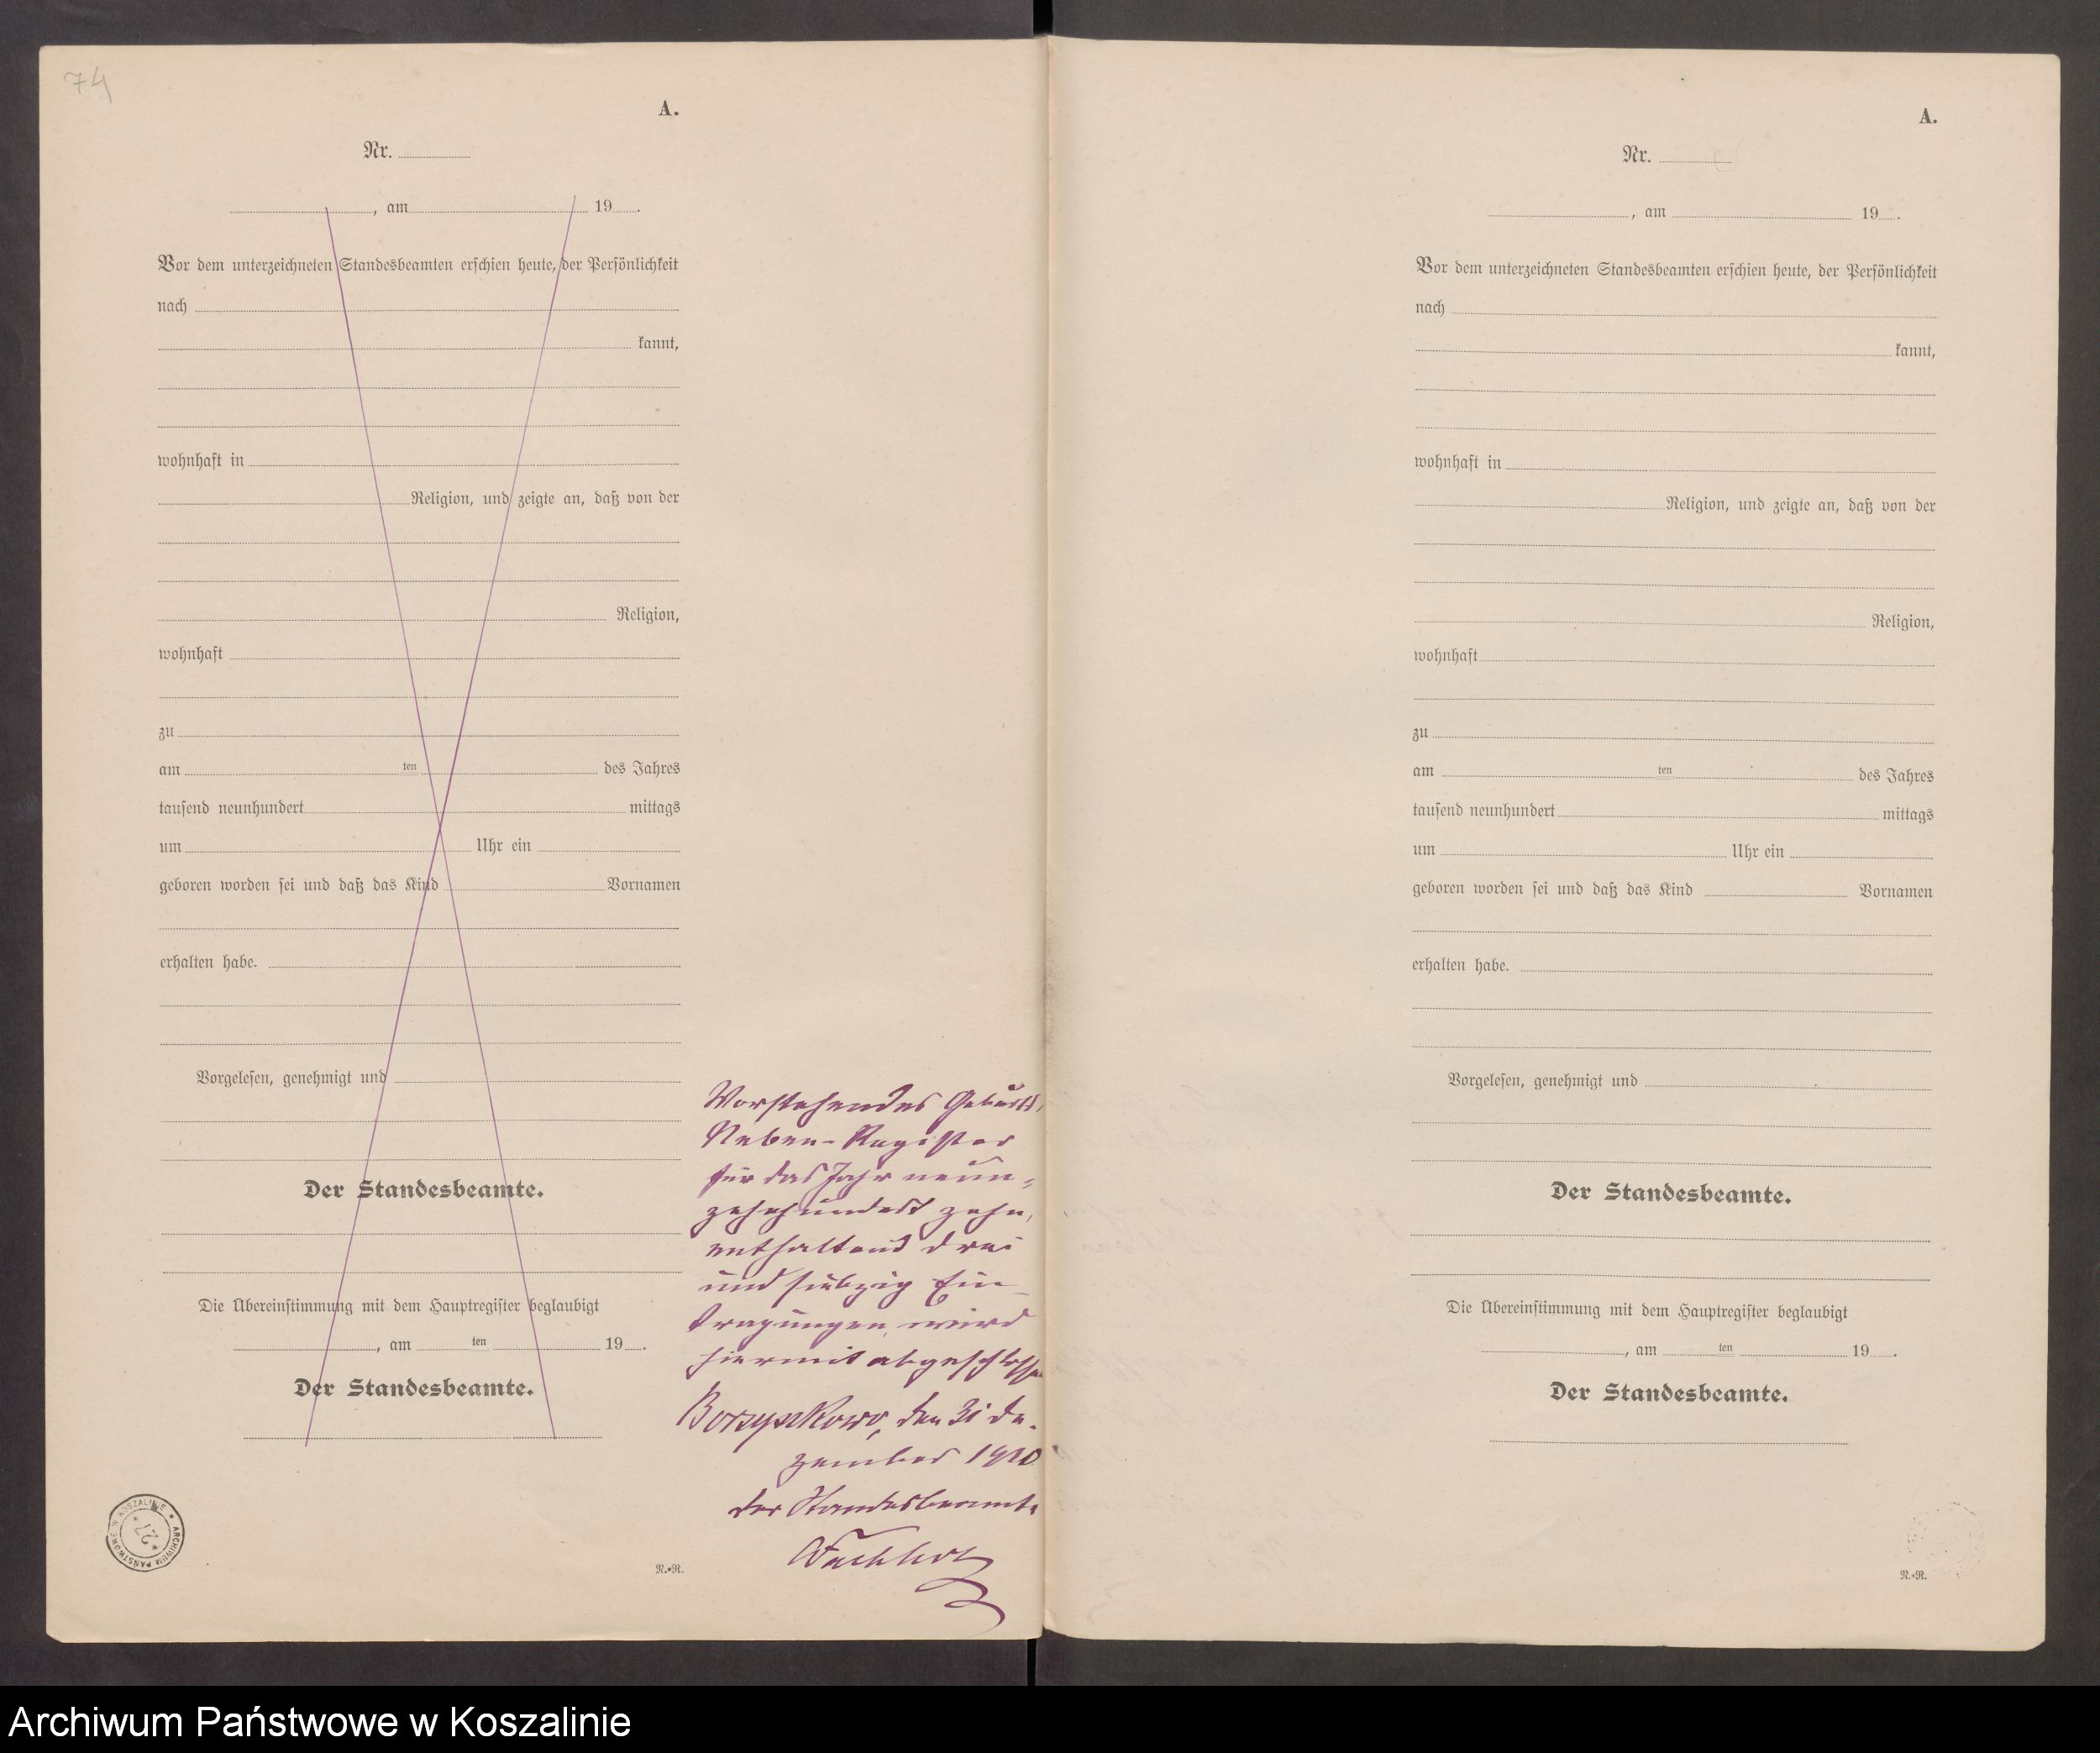 74
A.
Nr.
, am 19 .
Vor dem unterzeichneten Standesbeamten erschien heute, der Persönlichkeit
nach
kannt,
wohnhaft in
Religion, und zeigte an, daß von der
Religion,
wohnhaft
zu
am ten des Jahres
tausend neunhundert mittags
um Uhr ein
geboren worden sei und daß das Kind Vornamen
erhalten habe.
Vorgelesen, genehmigt und
Der Standesbeamte.
Die Übereinstimmung mit dem Hauptregister beglaubigt
, am ten 19 .
Der Standesbeamte.
ARCHIWUM PAŃSTWOWE W KOSZALINIE
* 27 *
N.=R.
Vorstehendes Geburts-
Neben-Register
für das Jahr neun-
zehnhundert zehn,
enthaltend drei
und siebzig Ein-
tragungen wird
hiermit abgeschlossen
Borzyszkowo, den 31 De-
zember 1910
Der Standesbeamte
A.
Nr.
, am 19 .
Vor dem unterzeichneten Standesbeamten erschien heute, der Persönlichkeit
nach
kannt,
wohnhaft in
Religion, und zeigte an, daß von der
Religion,
wohnhaft
zu
am ten des Jahres
tausend neunhundert mittags
um Uhr ein
geboren worden sei und daß das Kind Vornamen
erhalten habe.
Vorgelesen, genehmigt und
Der Standesbeamte.
Die Übereinstimmung mit dem Hauptregister beglaubigt
, am ten 19 .
Der Standesbeamte.
N.=R.
Archiwum Państwowe w Koszalinie